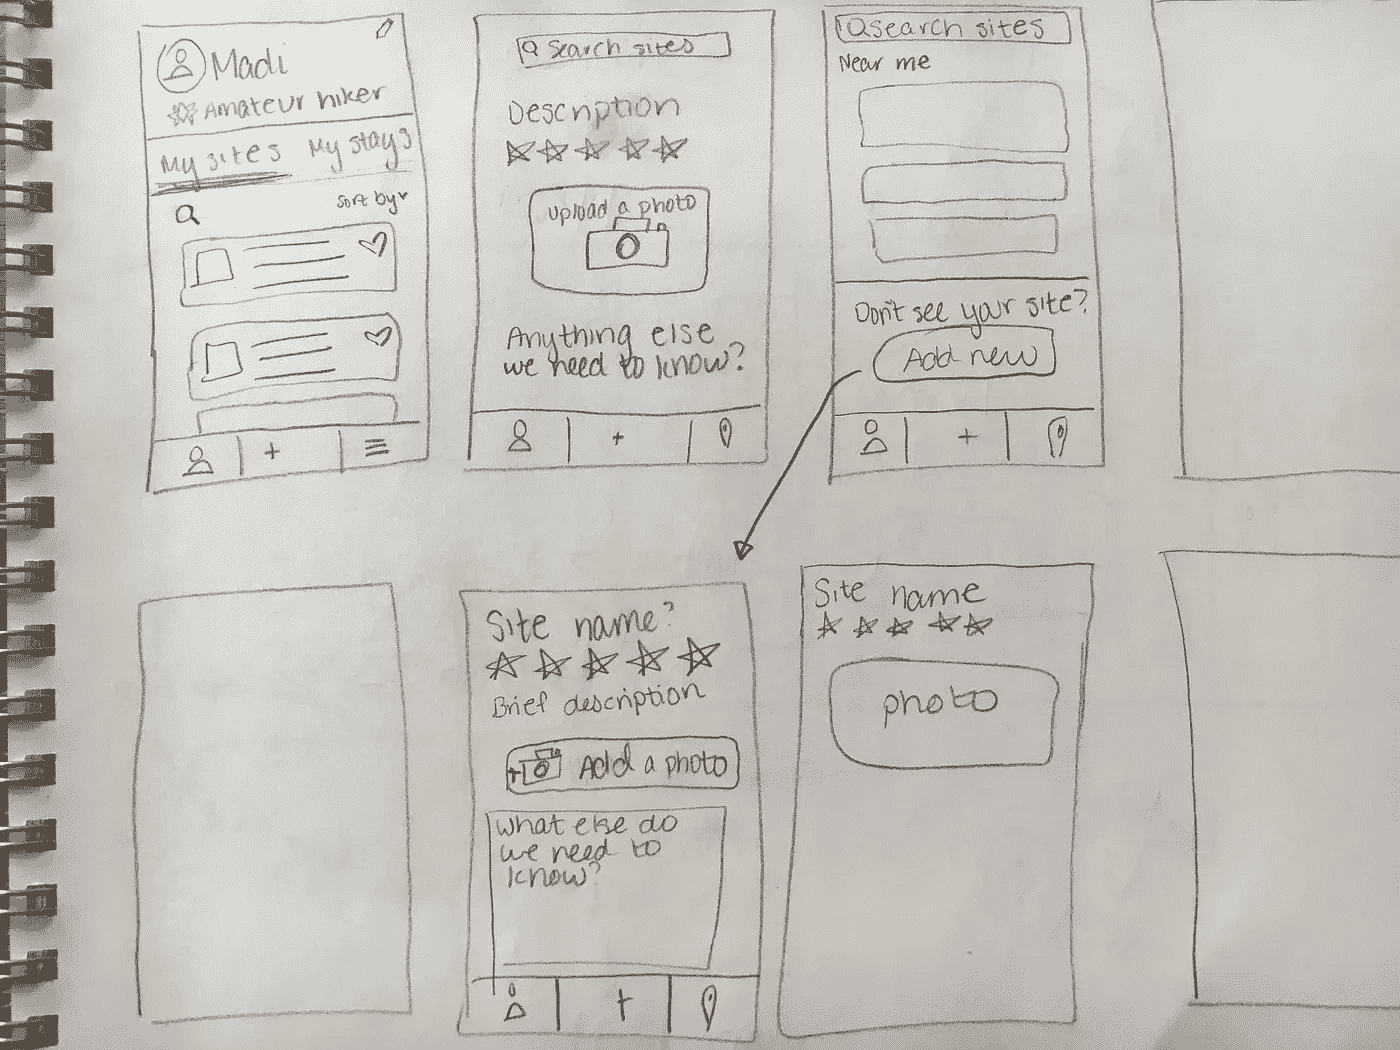 Madi
Amateur hiker
My sites My stays
Sort by
Search sites
Description
Upload a photo
Anything else
we need to know?
Search sites
Near me
Don't see your site?
Add new
Site name?
Brief description
Add a photo
What else do
we need to
know?
Site name
photo